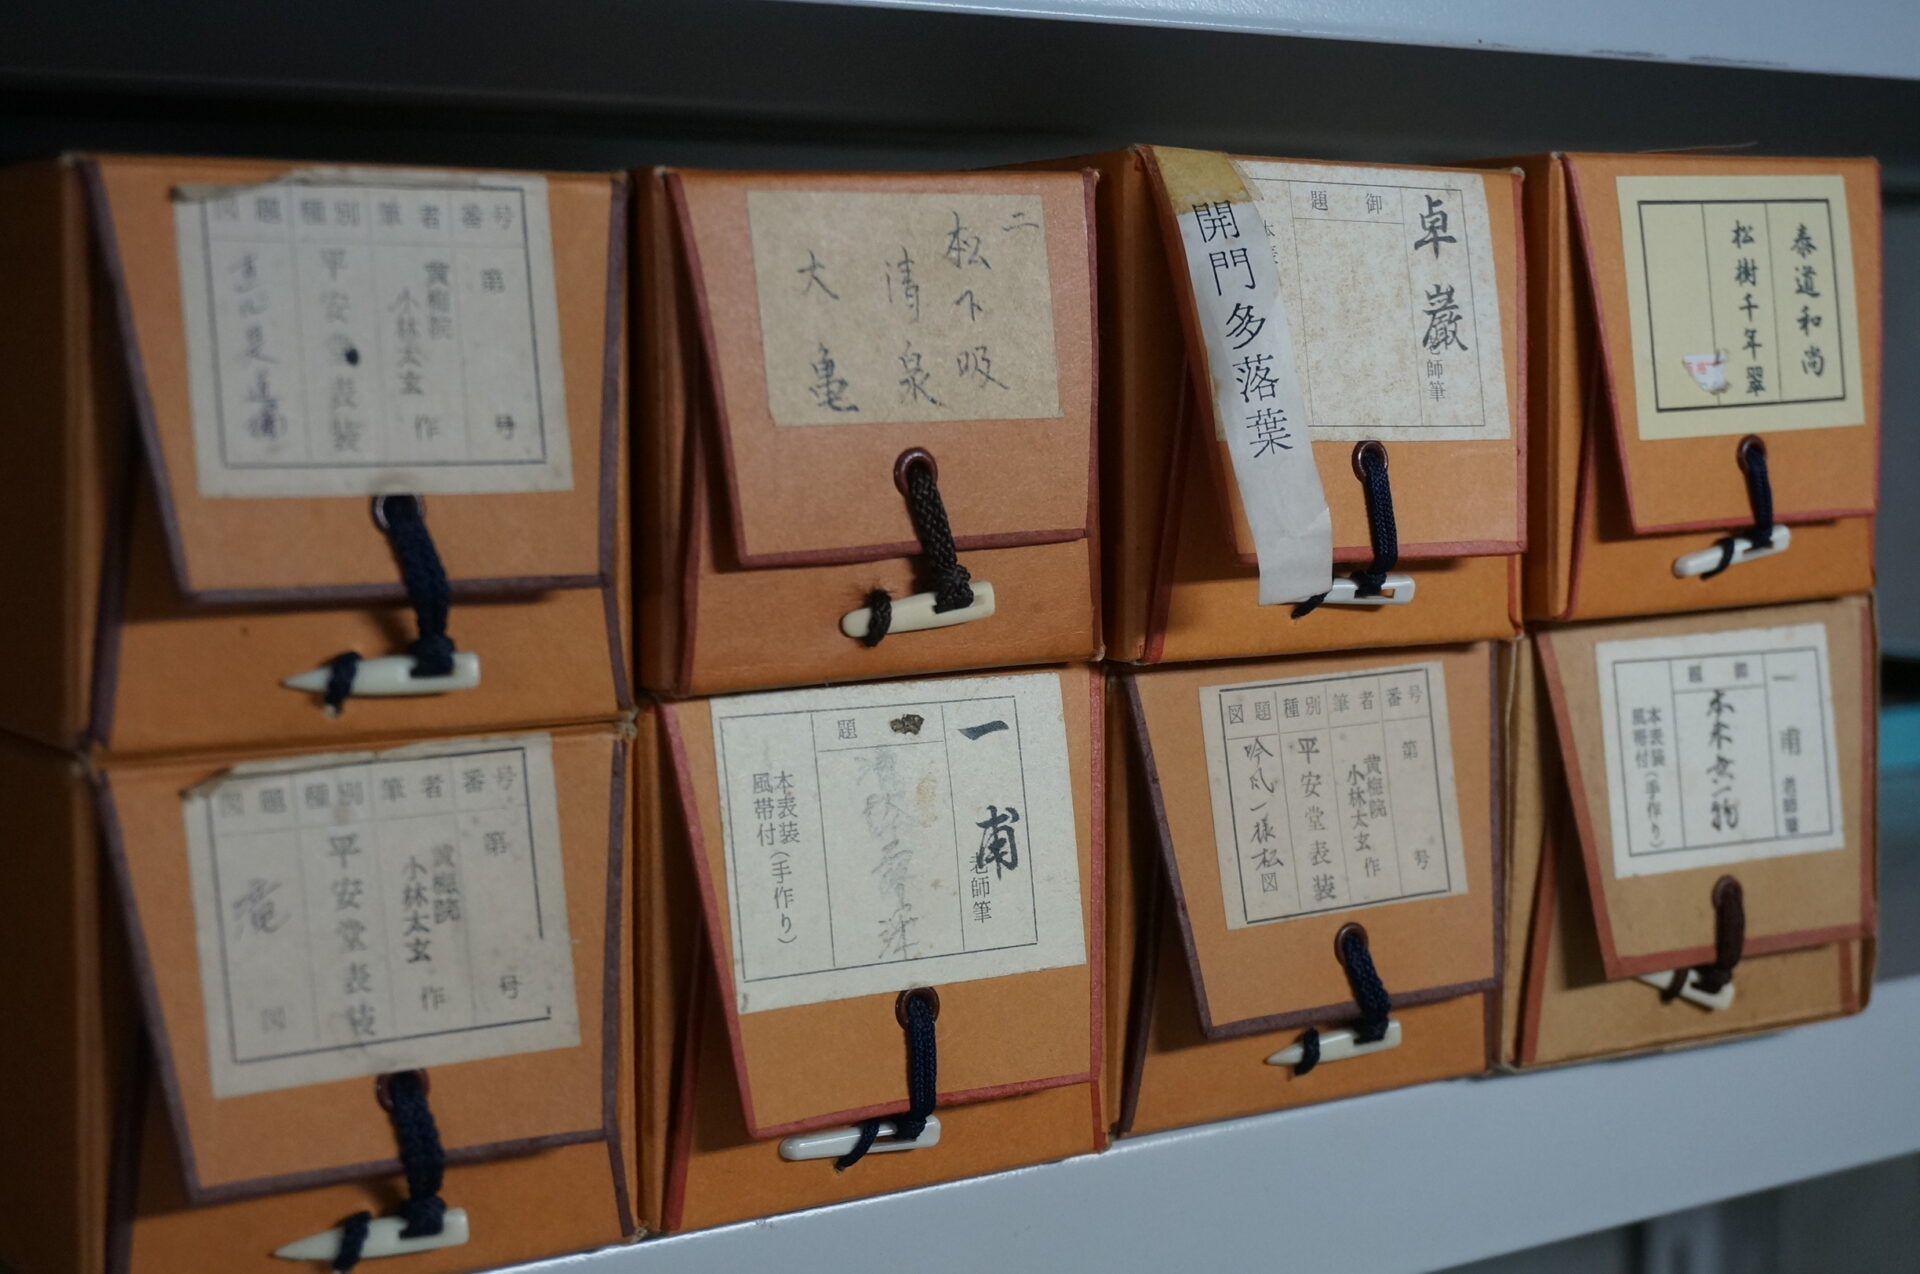 図題 種別 筆者 番号
第 号
黄梅院
小林太玄 作
平安 表装
二
松下汲
清泉
大亀
卓巌 老師筆
御題
開門多落葉
泰道和尚
松樹千年翠
図題 種別 筆者 番号
第 号
黄梅院
小林太玄 作
平安堂表装
一甫 老師筆
題
本表装(手作り)
風帯付
図題 種別 筆者 番号
第 号
黄梅院
小林太玄 作
平安堂表装
吟風一様松図
一甫 老師筆
御題
本来無一物
本表装(手作り)
風帯付